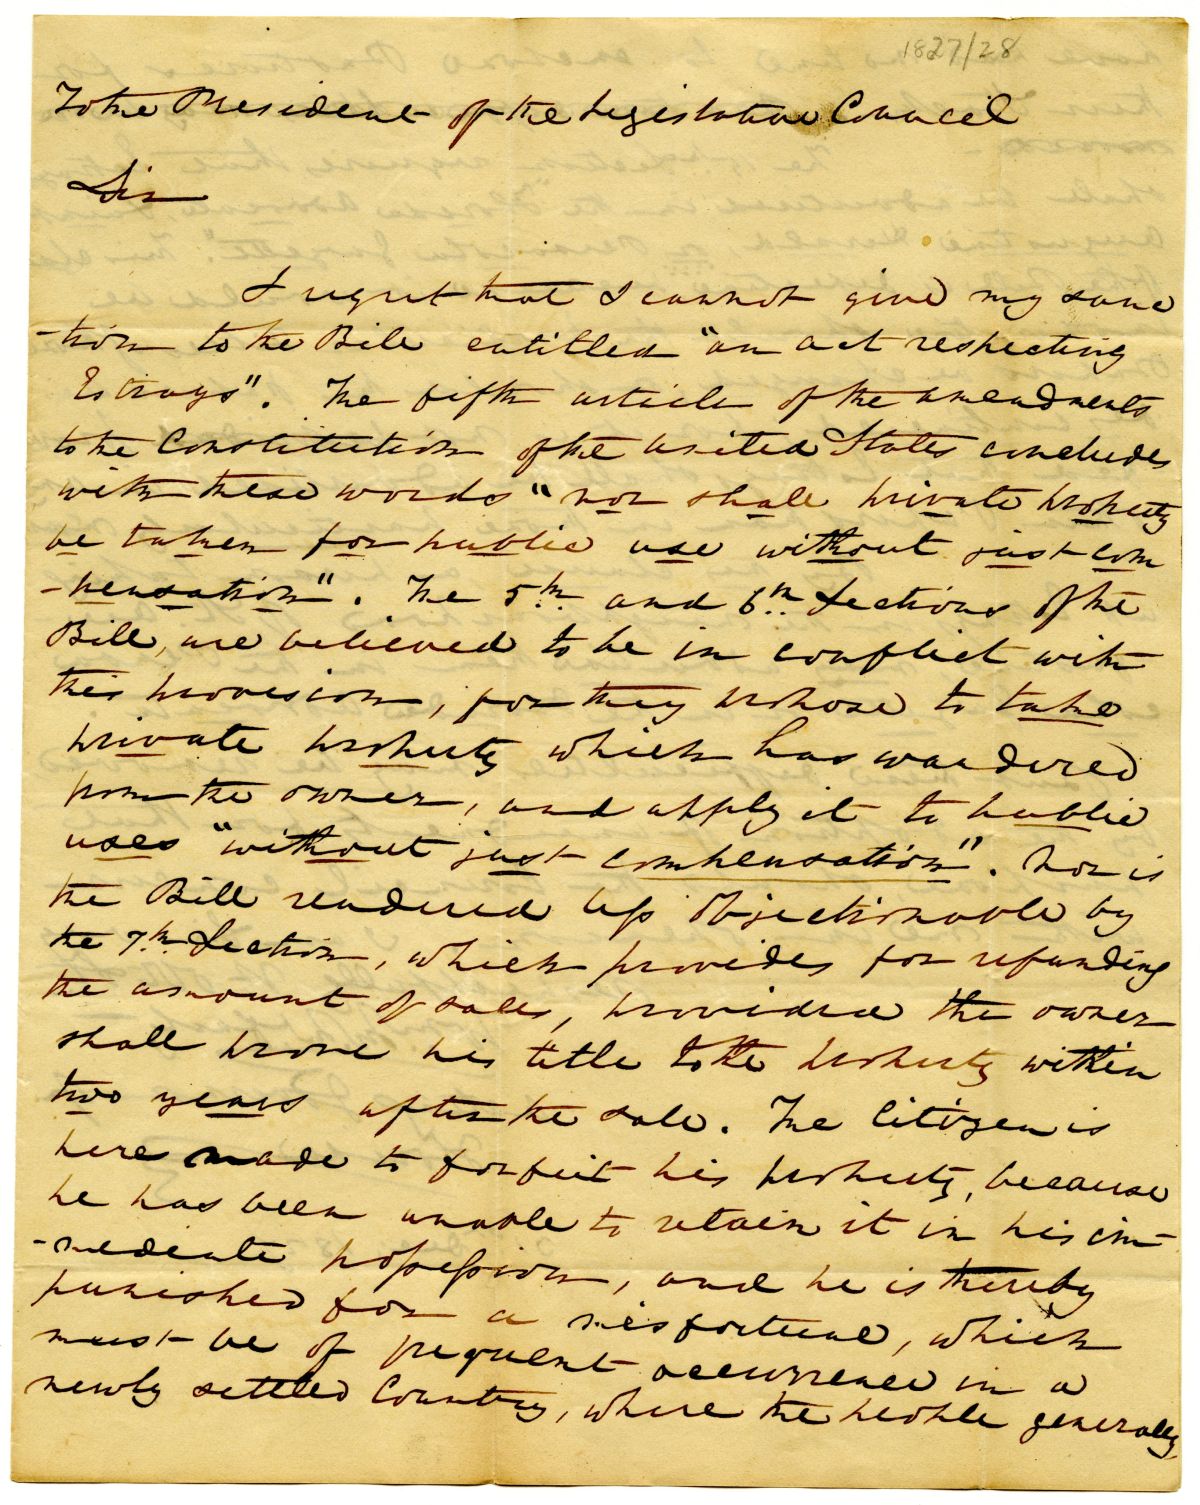 1827/28
To the President of the Legislative Council
Sir
I regret that I cannot give my sanc
-tion to the Bill entitled "an act respecting
Estrays". The fifth article of the amendments
to the Constitution of the United States concludes
with these words "nor shall private property
be taken for public use without just com
-pensation". The 5th and 6th Sections of the
Bill, are believed to be in conflict with
this provision, for they propose to take
private property which has wandered
from the owner, and apply it to public
uses "without just compensation". Nor is
the Bill rendered less objectionable by
the 7th Section, which provides for refunding
the amount of sales, provided the owner
shall prove his title to the property within
two years after the sale. The Citizen is
here made to forfeit his property, because
he has been unable to retain it in his im
-mediate possession, and he is thereby
punished for a misfortune, which
must be of frequent occurrence in a
newly settled Country, where the people generally